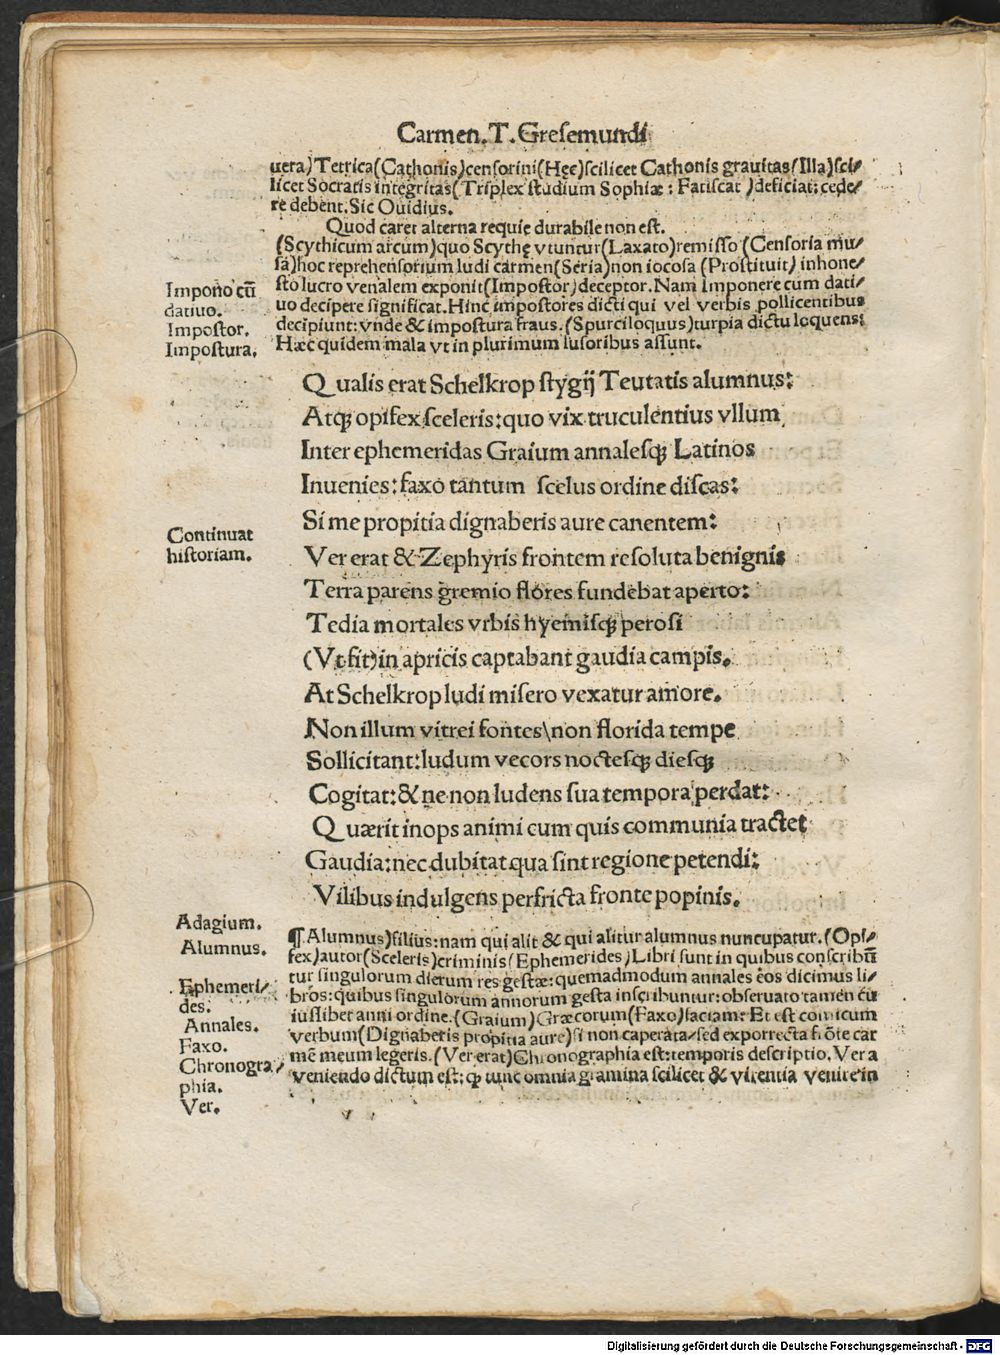 Carmen. T. Gresemundi
uera) Tetrica(Cathonis)censorini(Hęc)scilicet Cathonis grauitas(Illa)sci⸗
licet Socratis integritas(Triplex studium Sophiæ: Fatiscat )deficiat: cede⸗
re debent. Sic Ouidius.
Quod caret alterna requie durabile non est.
(Scythicum arcum)quo Scythę vtuntur(Laxato)remisso (Censoria mu⸗
sa)hoc reprehensorium ludi carmen(Seria)non iocosa (Prostituit) inhone⸗
sto lucro venalem exponit(Impostor)deceptor. Nam Imponere cum dati⸗
uo decipere significat. Hinc impostores dicti qui vel verbis pollicentibus
decipiunt: vnde & impostura fraus. (Spurciloquus)turpia dictu loquens:
Hæc quidem mala vt in plurimum lusoribus assunt.
Impono cū
datiuo.
Impostor.
Impostura.
Qualis erat Schelkrop stygij Teutatis alumnus:
Atqꝫ opifex sceleris: quo vix truculentius vllum
Inter ephemeridas Graium annalesqꝫ Latinos
Inuenies: faxo tantum scelus ordine discas:
Si me propitia dignaberis aure canentem:
Ver erat & Zephyris frontem resoluta benignis
Terra parens gremio flores fundebat aperto:
Tedia mortales vrbis hyemisqꝫ perosi
(Vt fit)in apricis captabant gaudia campis.
At Schelkrop ludi misero vexatur amore.
Non illum vitrei fontes\non florida tempe
Sollicitant: ludum vecors noctesqꝫ diesqꝫ
Cogitat: & ne non ludens sua tempora perdat:
Quærit inops animi cum quis communia tractet
Gaudia: nec dubitat qua sint regione petendi:
Vilibus indulgens perfricta fronte popinis.
Continuat
historiam.
¶ Alumnus)filius: nam qui alit & qui alitur alumnus nuncupatur. (Opi⸗
fex)autor(Sceleris)criminis(Ephemerides)Libri sunt in quibus conscribū
tur singulorum dierum res gestæ: quemadmodum annales eos dicimus li⸗
bros: quibus singulorum annorum gesta inscribuntur: obseruato tamen cu
iuslibet anni ordine. (Graium)Græcorum(Faxo)faciam: Et est comicum
verbum(Dignaberis propitia aure)si non caperata/sed exporrecta frōte car
mē meum legeris. (Ver erat)Chronographia est: temporis descriptio. Ver a
veniendo dictum est: ꝙ tunc omnia gramina scilicet & virentia venire in
Adagium.
Alumnus.
Ephemeri⸗
des.
Annales.
Faxo.
Chronogra⸗
phia.
Ver.
Digitalisierung gefördert durch die Deutsche Forschungsgemeinschaft - DFG